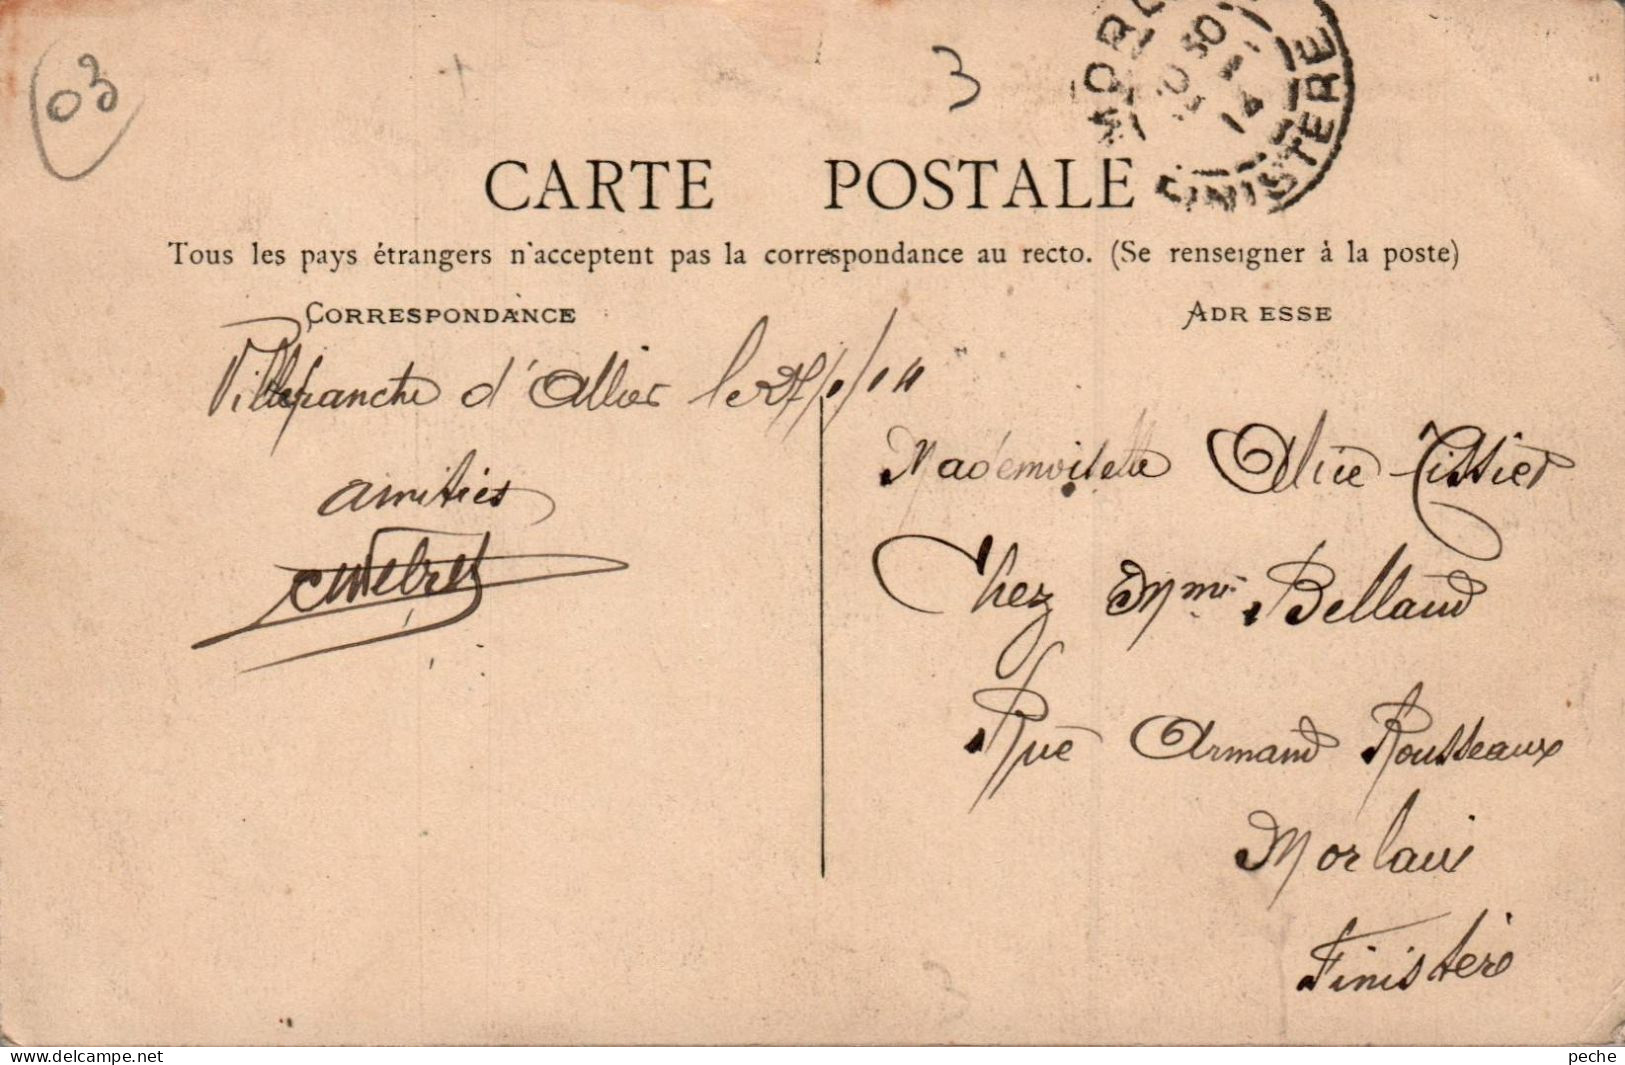 03
3
MORL
30
14
FINISTERE
CARTE POSTALE
Tous les pays étrangers n'acceptent pas la correspondance au recto. (Se renseigner à la poste)
CORRESPONDANCE
ADRESSE
Villefranche d'Allier le 27/1/14
amitiés
Mademoiselle Alice Tissier
Chez Mme Bellaud
Rue Armand Rousseaux
Morlaix
Finistère
3
www.delcampe.net
peche